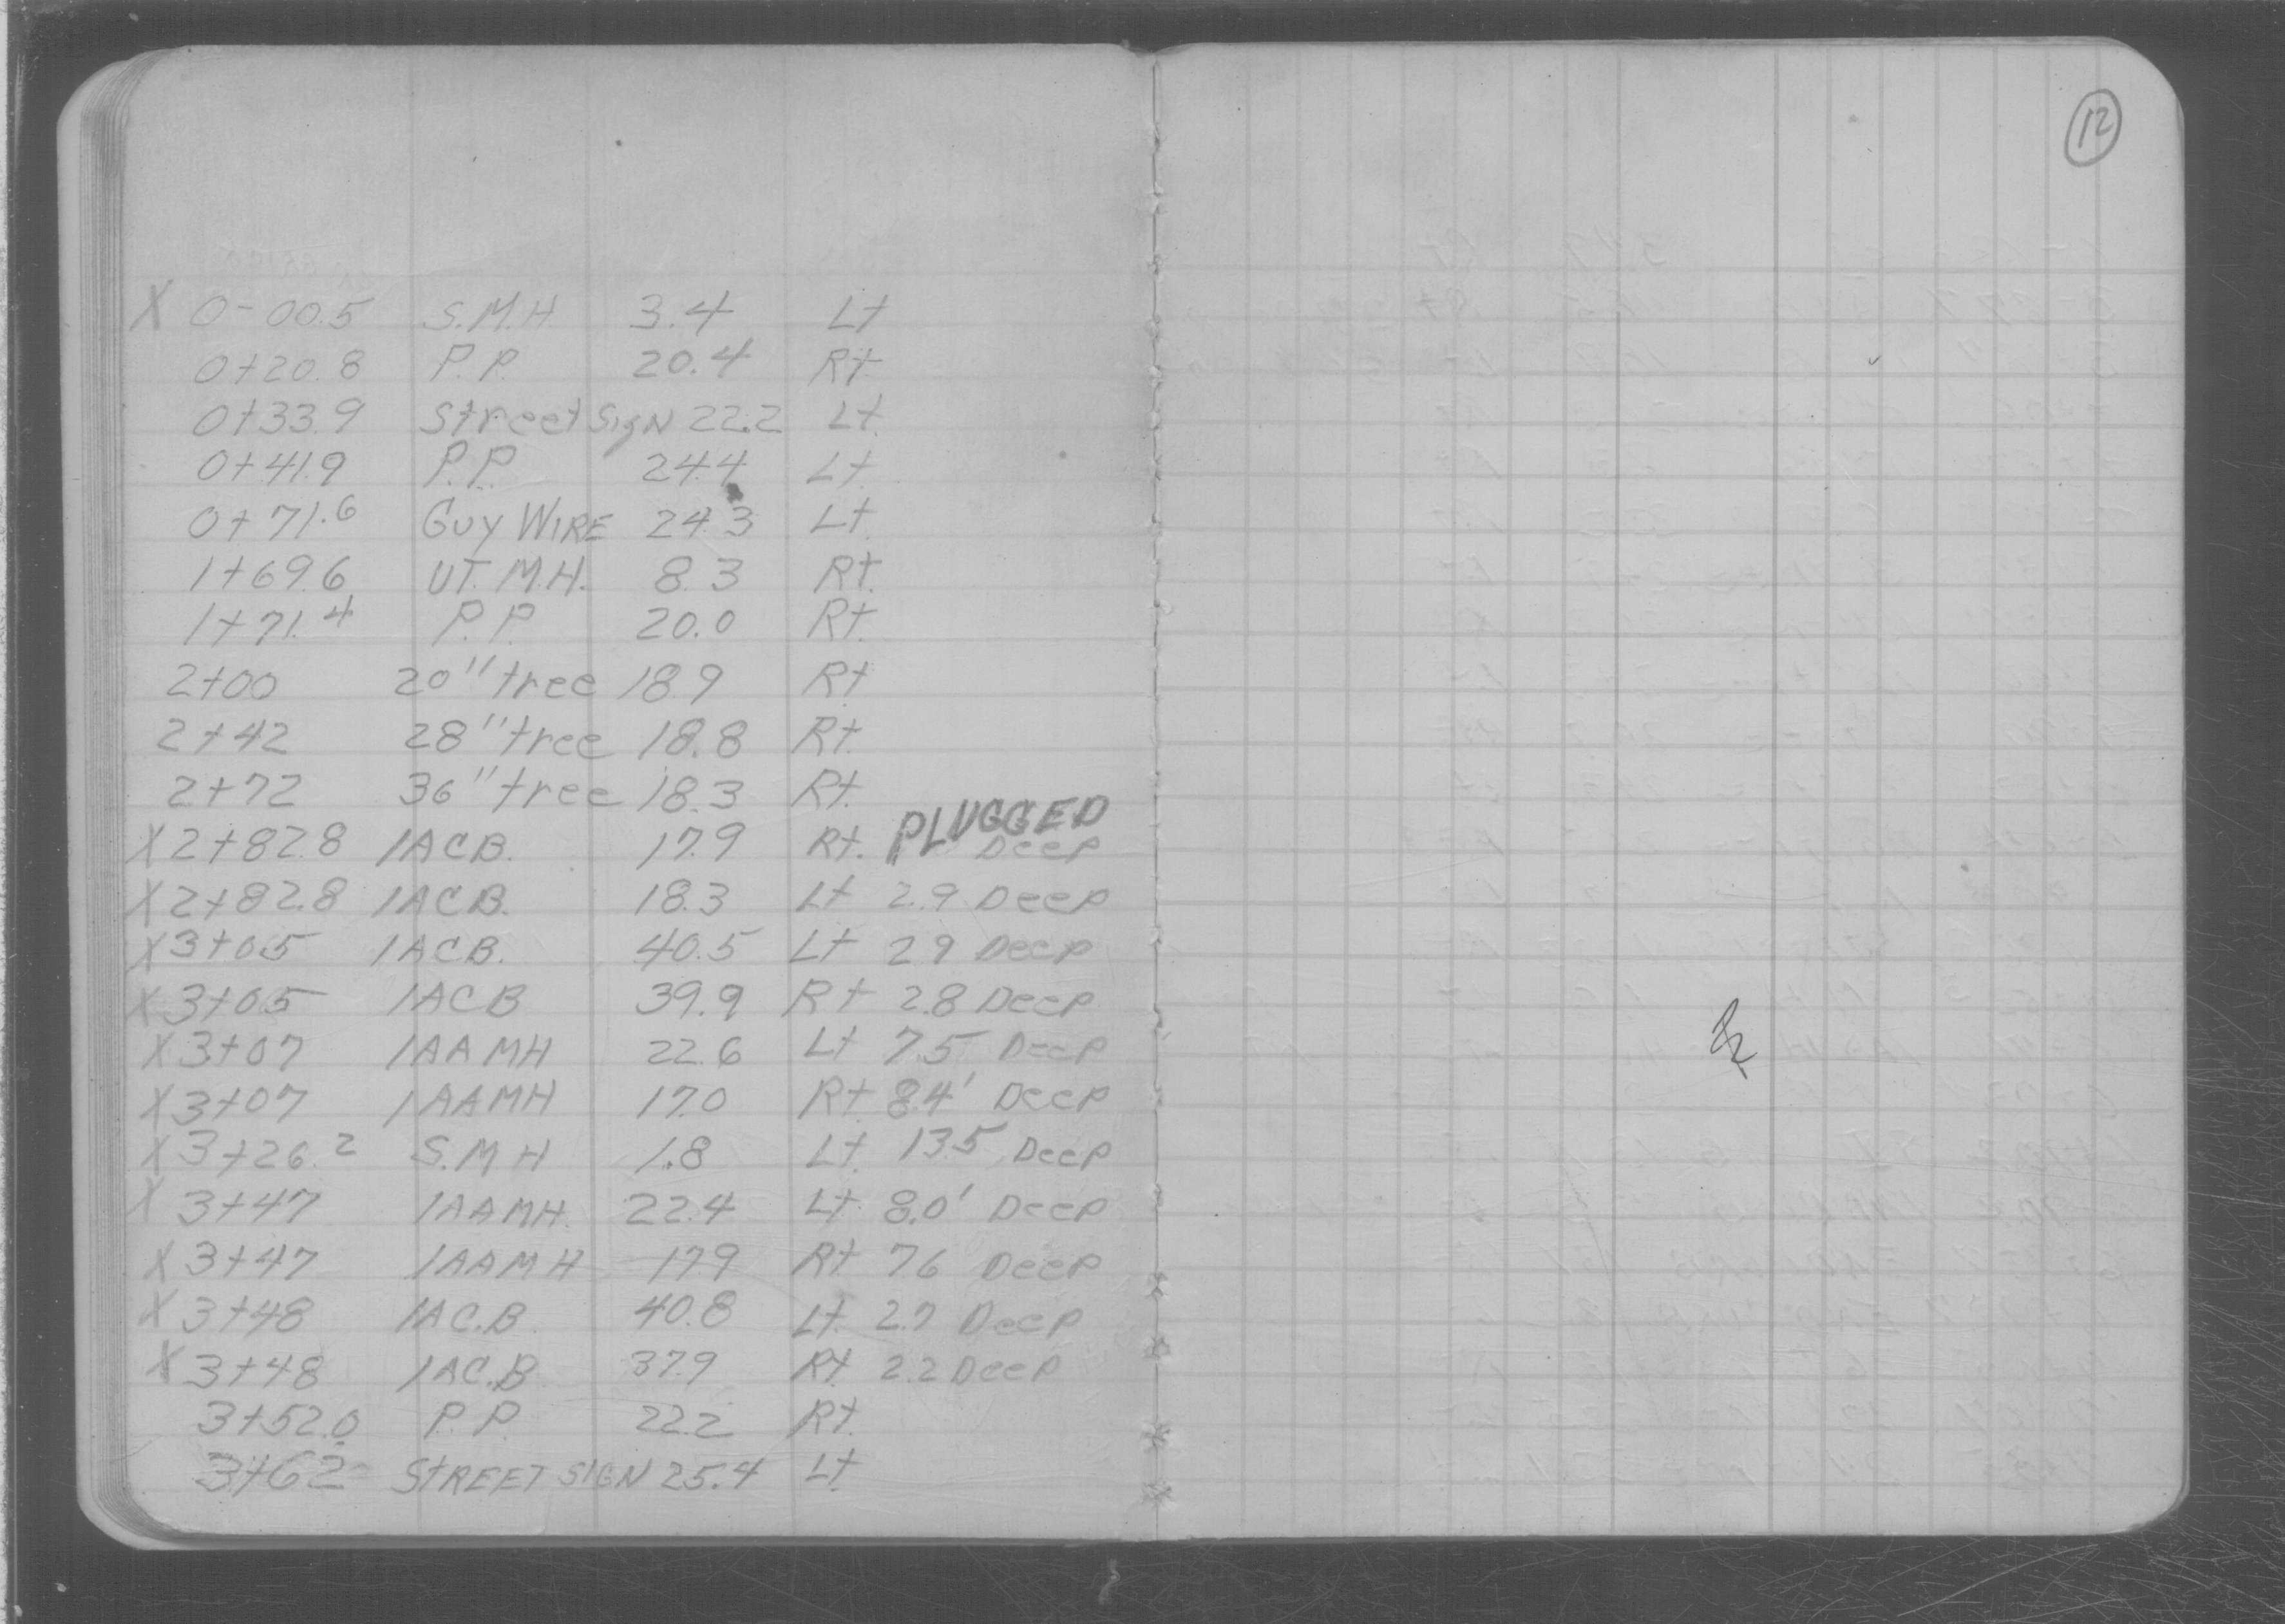 12
X 0-00.5 S.M.H. 3.4 Lt
0+20.8 P.P. 20.4 Rt
0+33.9 Street Sign 22.2 Lt.
0+41.9 P.P. 24.4 Lt.
0+71.6 Guy WIRE 24.3 Lt.
1+69.6 UT. M.H. 8.3 Rt.
1+71.4 P.P. 20.0 Rt.
2+00 20" tree 18.9 Rt
2+42 28" tree 18.8 Rt.
2+72 36" tree 18.3 Rt.
PLUGGED
X 2+82.8 1ACB. 17.9 Rt. Deep
X 2+82.8 1ACB. 18.3 Lt 2.9 Deep
X 3+05 1ACB. 40.5 Lt 2.9 Deep
X 3+05 1ACB 39.9 Rt 2.8 Deep
X 3+07 1AAMH 22.6 Lt 7.5 Deep
X 3+07 1AAMH 17.0 Rt 8.4' Deep
X 3+26.2 S.M.H 1.8 Lt. 13.5 Deep
X 3+47 1AAMH. 22.4 Lt. 8.0' Deep
X 3+47 1AAMH 17.9 Rt 7.6 Deep
X 3+48 1AC.B. 40.8 Lt. 2.7 Deep
X 3+48 1AC.B 37.9 Rt. 2.2 Deep
3+52.0 P.P. 22.2 Rt.
3+62 STREET SIGN 25.4 Lt.